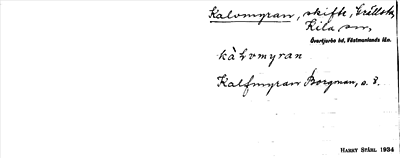 Kalvmyran, skifte,
Kila sn,
Övertjurbo hd, Västmanlands län.
kàLvmyran
Kalfmyran Borgman, s. 8.
HARRY STÅHL 1934